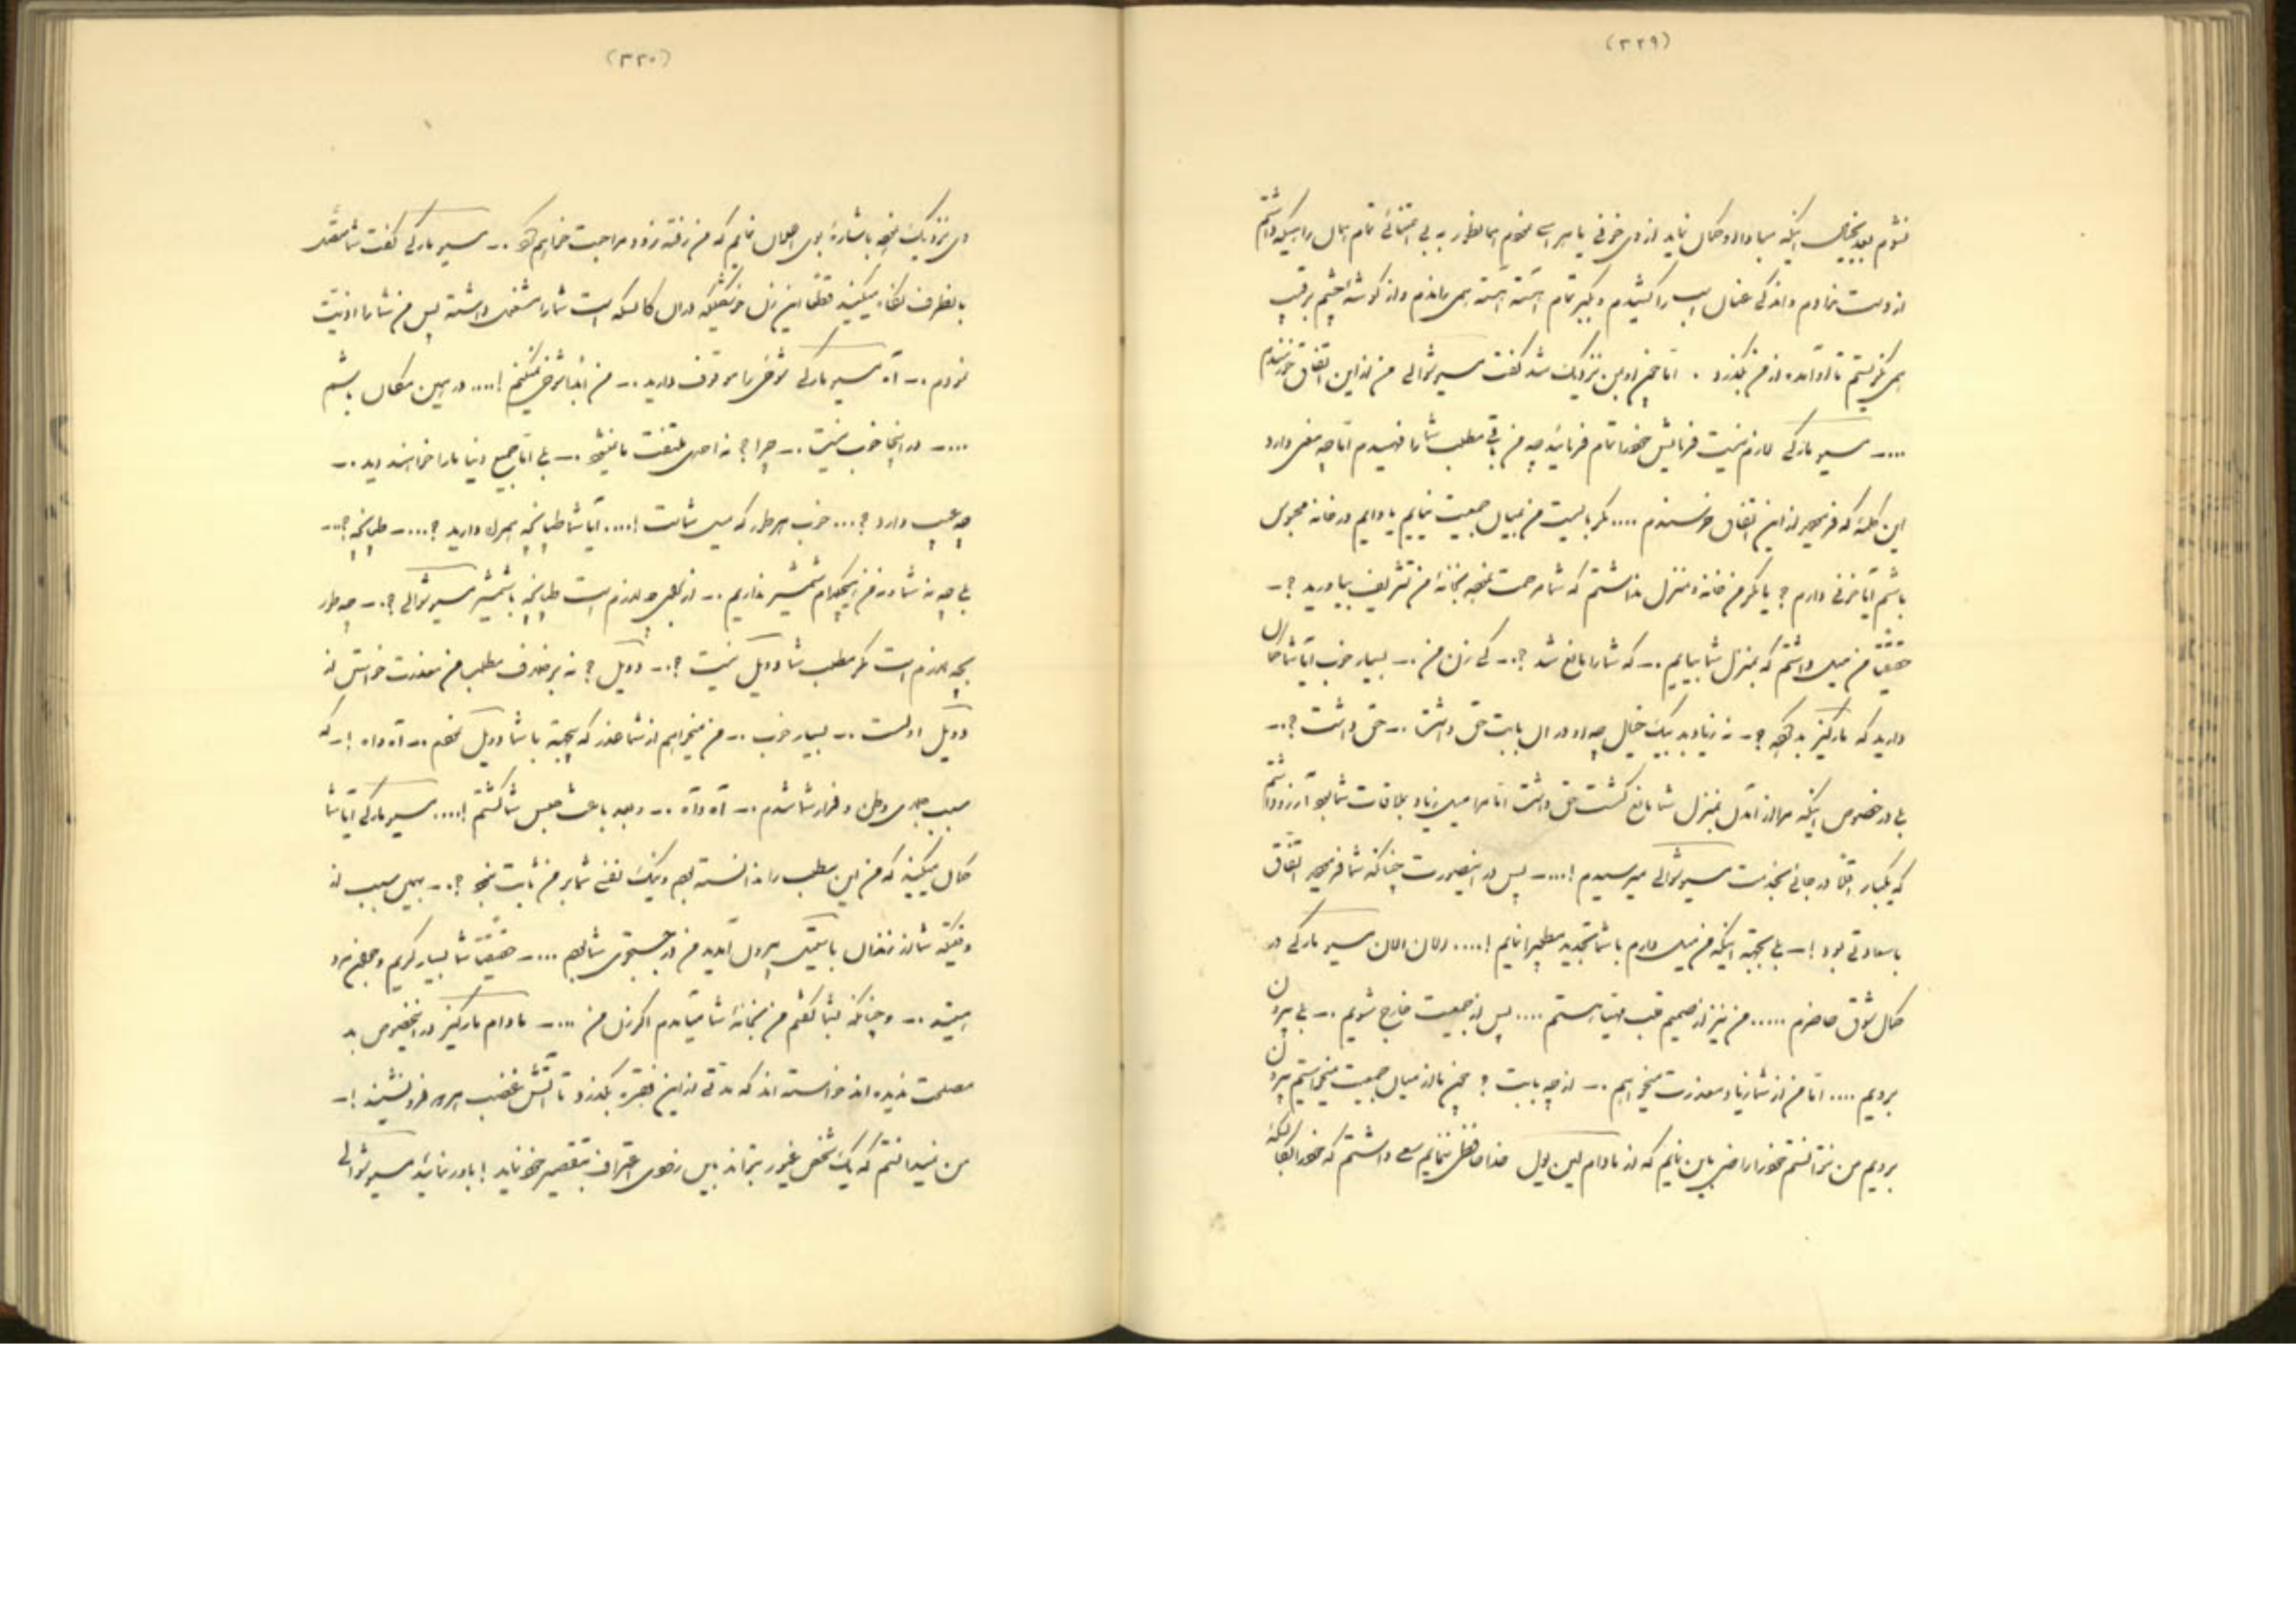 (۲۲۹)
نشوم بعد بخیال اینکه مبادا او گمان نماید از وی خوفی یا هراسی منهم همانطور به بی اعتنائی تمام ایمان را هنگه داشتم
از دست ندادم و اندکی عنان اسب را کشیدم و بکبر تمام آهسته آهسته همی راندم و از گوشه چشم برقیب
همی نگریستم تا او آمده از من بگذرد . اما چون او بمن نزدیک شد گفت مسیو شوالی من از این اتفاق خورسندم
....ـ مسیو مارکی لازم نیست فرمایش خود را تمام فرمائید چه من باقی مطلب شما را فهمیدم اما چه معنی دارد
این کلمه که فرمودید از این اتفاق خورسندم .... مگر بایست من بمیان جمعیت نیایم یا دایم در خانه محبوس
باشم آیا خوفی دارم ؟ یا مگر من خانه و منزل نداشتم که شما زحمت نموده بخانه من تشریف بیاورید ؟ـ
حقیقتا من میل داشتم که بمنزل شما بیایم .ـ که شما را مانع شد ؟.ـ کی زن من .ـ بسیار خوب آیا شما گمان
دارید که مارکیز بد کرده ؟.ـ نه زیاد بد بیک خیال چه او در آن بابت حق داشت .ـ حق داشت ؟.ـ
بلی در خصوص اینکه مرا از آمدن بمنزل شما مانع گشت حق داشت اما مرا میل زیاد بملاقات شما بود آرزو داشتم
که یکبار اقلا در جائی بخدمت مسیو شوالی میرسیدم !....ـ پس در اینصورت چنانکه شما فرمودید اتفاق
با سعادتی بود !ـ بلی بجهة اینکه من میل دارم با شما تجدید مطلب را نمایم !.... الان الان مسیو مارکی در
کمال شوق حاضرم ..... من نیز از صمیم قلب مهیا هستم .... پس از جمعیت خارج شویم .ـ بلی بیرون
برویم .... اما من از شما زیاد معذرت میخواهم .ـ از چه بابت ؟ چون ما از میان جمعیت میخواستیم بیرون
برویم من نتوانستم خود را راضی باین نمایم که از مادام لین یول خداحافظی ننمایم سعی داشتم که خود را بکالسکه
(۲۳۰)
وی نزدیک نموده باشاره بوی اعلان نمایم که من رفته زود مراجعت خواهم کرد .ـ مسیو مارکی گفت شما معتقد
بانطرف نگاه میکنید قطعا این زن خوشگلیکه در آن کالسکه است شما را مشغول داشته پس من شما را اذیت
نمودم .ـ آه مسیو مارکی شوخی را موقوف دارید .ـ من ابدا شوخی نمیکنم !.... در همین مکان باشیم
....ـ در اینجا خوب نیست .ـ چرا ؟ نه احدی ملتفت ما نمیشود .ـ بلی اما جمیع دنیا ما را خواهند دید .ـ
چه عیب دارد ؟... خوب هر طور که میل شماست !.... آیا شما طپانچه همراه دارید ؟....ـ طپانچه ؟.ـ
بلی چه نه شما و نه من هیچکدام شمشیر نداریم .ـ از برای چه لازم است طپانچه یا شمشیر مسیو شوالی ؟.ـ چه طور
بچه لازم است مگر مطلب شما دوئیل نیست ؟.ـ دوئیل ؟ نه بر خلاف مطلب من معذرت خواستن از
دوئیل اولست .ـ بسیار خوب .ـ من میخواهم از شما عذر که بچه جهة با شما دوئیل نکردم .ـ آه واه !ـ که
سبب جلای وطن و فرار شما شدم .ـ آه واه .ـ و بعد باعث حبس شما گشتم !.... مسیو مارکی آیا شما
گمان میکنید که من این مطلب را ندانسته بودم و نیک نفسی شما بر من ثابت نبود ؟.ـ بهمین سبب از
وقتیکه شما از زندان باستیل بیرون آمدید من در جستجوی شما بودم ....ـ حقیقتا شما بسیار کریم و جوانمرد
هستید .ـ و چنانکه بشما گفتم من بخانه شما میآمدم اگر زن من ....ـ مادام مارکیز در اینخصوص بد
مصلحت ندیده اند خواسته اند که مدتی از این فقره بگذرد تا آتش غضب هر دو فرو نشیند !ـ
من نمیدانستم که یک شخص غیور بتواند باین رضوی اعتراف بتقصیر خود نماید ! باور نمائید مسیو شوالی